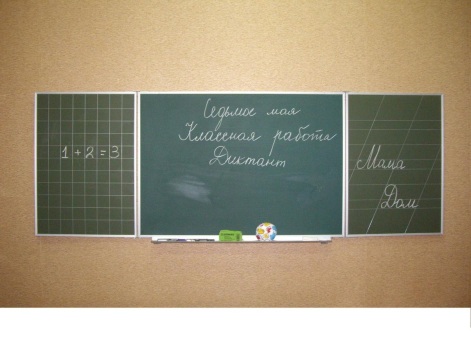 1 + 2 = 3
Седьмое мая
Классная работа
Диктант
Мама
Дом